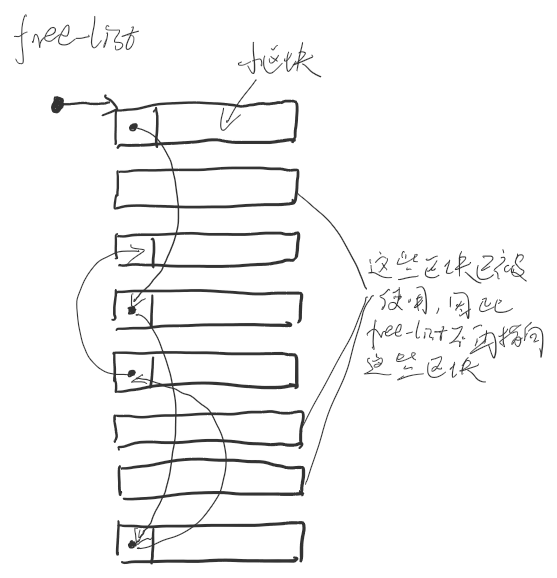 free-list
小区块
这些区块已被
使用,因此
free-list不再指向
这些区块